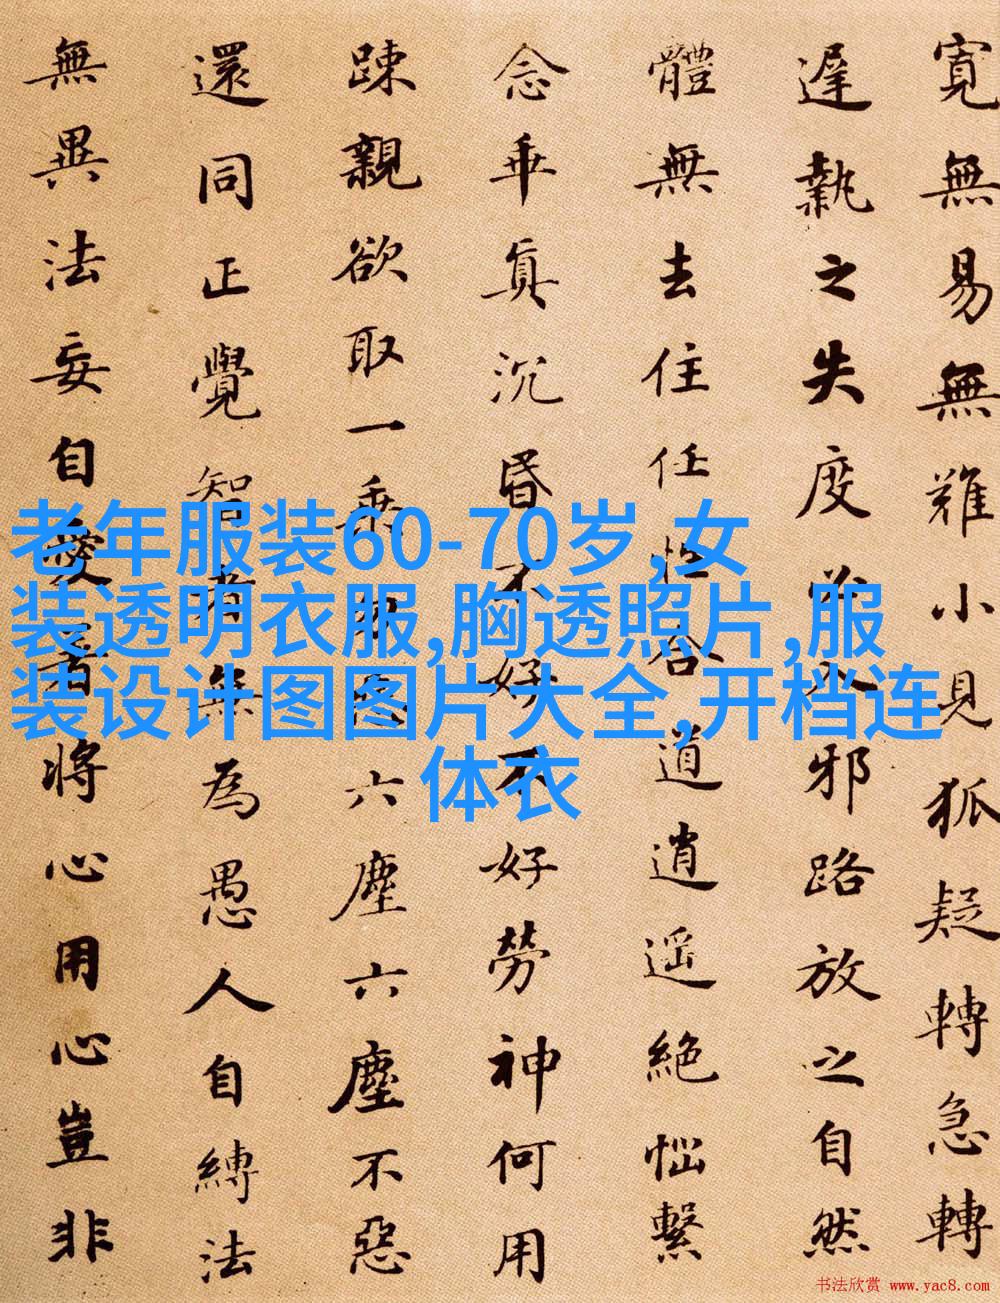 寬無易無難小見狐疑轉急轉
遲執之失度必入邪路放之自然
體無去住任性合道逍遥絕惱繫
念乖真沉昏不好不好勞神何用
踈親欲取一乘勿惡六塵六塵不惡
還同正覺智者無為愚人自縛法
無異法妄自愛著將心用心豈非
老年服装60-70岁,女
装透明衣服,胸透照片,服
装设计图图片大全,开档连
体衣
书法欣赏 www.yac8.com